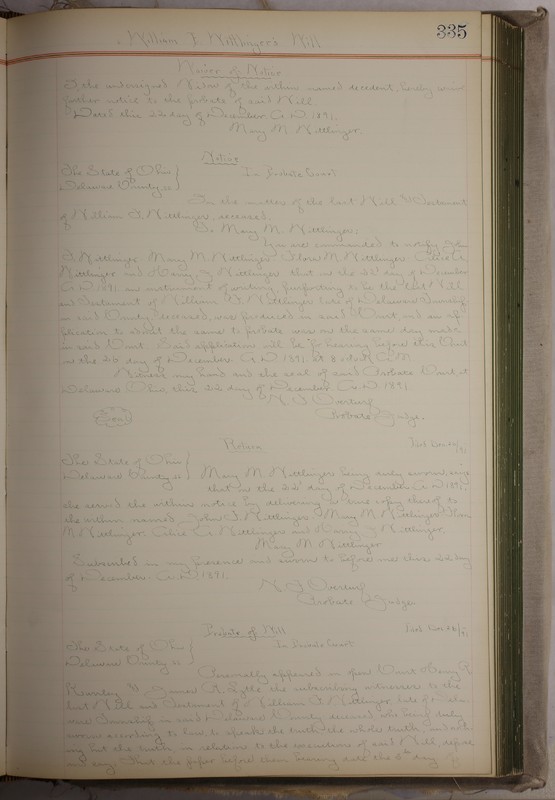 335
William F. Nittinger's Will
Waiver of Notice
I the undersigned Widow of the within named decedent, hereby waive
further notice to the probate of said Will.
Dated this 22 day of December A.D. 1891.
Mary M. Nittinger.
Notice
The State of Ohio } In Probate Court
Delaware County ss
In the matter of the last Will & Testament
of William F. Nittinger, deceased.
To Mary M. Nittinger:
You are commanded to notify John
F. Nittinger Mary M. Nittinger M. Nittinger
Nittinger and Nittinger that on the 22 day of December
A.D. 1891 an instrument of writing, purporting to be the last Will
and Testament of William F. Nittinger late of Delaware Township
in said County, deceased, was produced in said Court, and an ap-
plication to admit the same to probate was on the same day made
in said Court. Said application will be for hearing before this Court
on the 26 day of December A.D. 1891, at 8 o'clock A.M.
Witness my hand and the seal of said Probate Court at
Delaware Ohio, this 22 day of December A.D. 1891
Seal
Probate Judge.
Return
The State of Ohio }
Delaware County ss Mary M. Nittinger being duly sworn says
that on the 22 day of December A.D. 1891,
she served the within notice by delivering a true copy thereof to
the within named, John F. Nittinger Mary M. Nittinger
M. Nittinger, Nittinger and Nittinger.
Mary M. Nittinger
Subscribed in my presence and sworn to before me this 22 day
of December. A.D. 1891.
Probate Judge
Probate of Will
The State of Ohio } In Probate Court
Delaware County ss
Personally appeared in open Court
the subscribing witnesses to the
last Will and Testament of William F. Nittinger, late of Dela-
ware Township in said Delaware County, deceased who being duly
sworn according to law to speak the truth the whole truth and noth-
ing but the truth, in relation to the execution of said Will, depose
and say: That the paper before them bearing date the day of